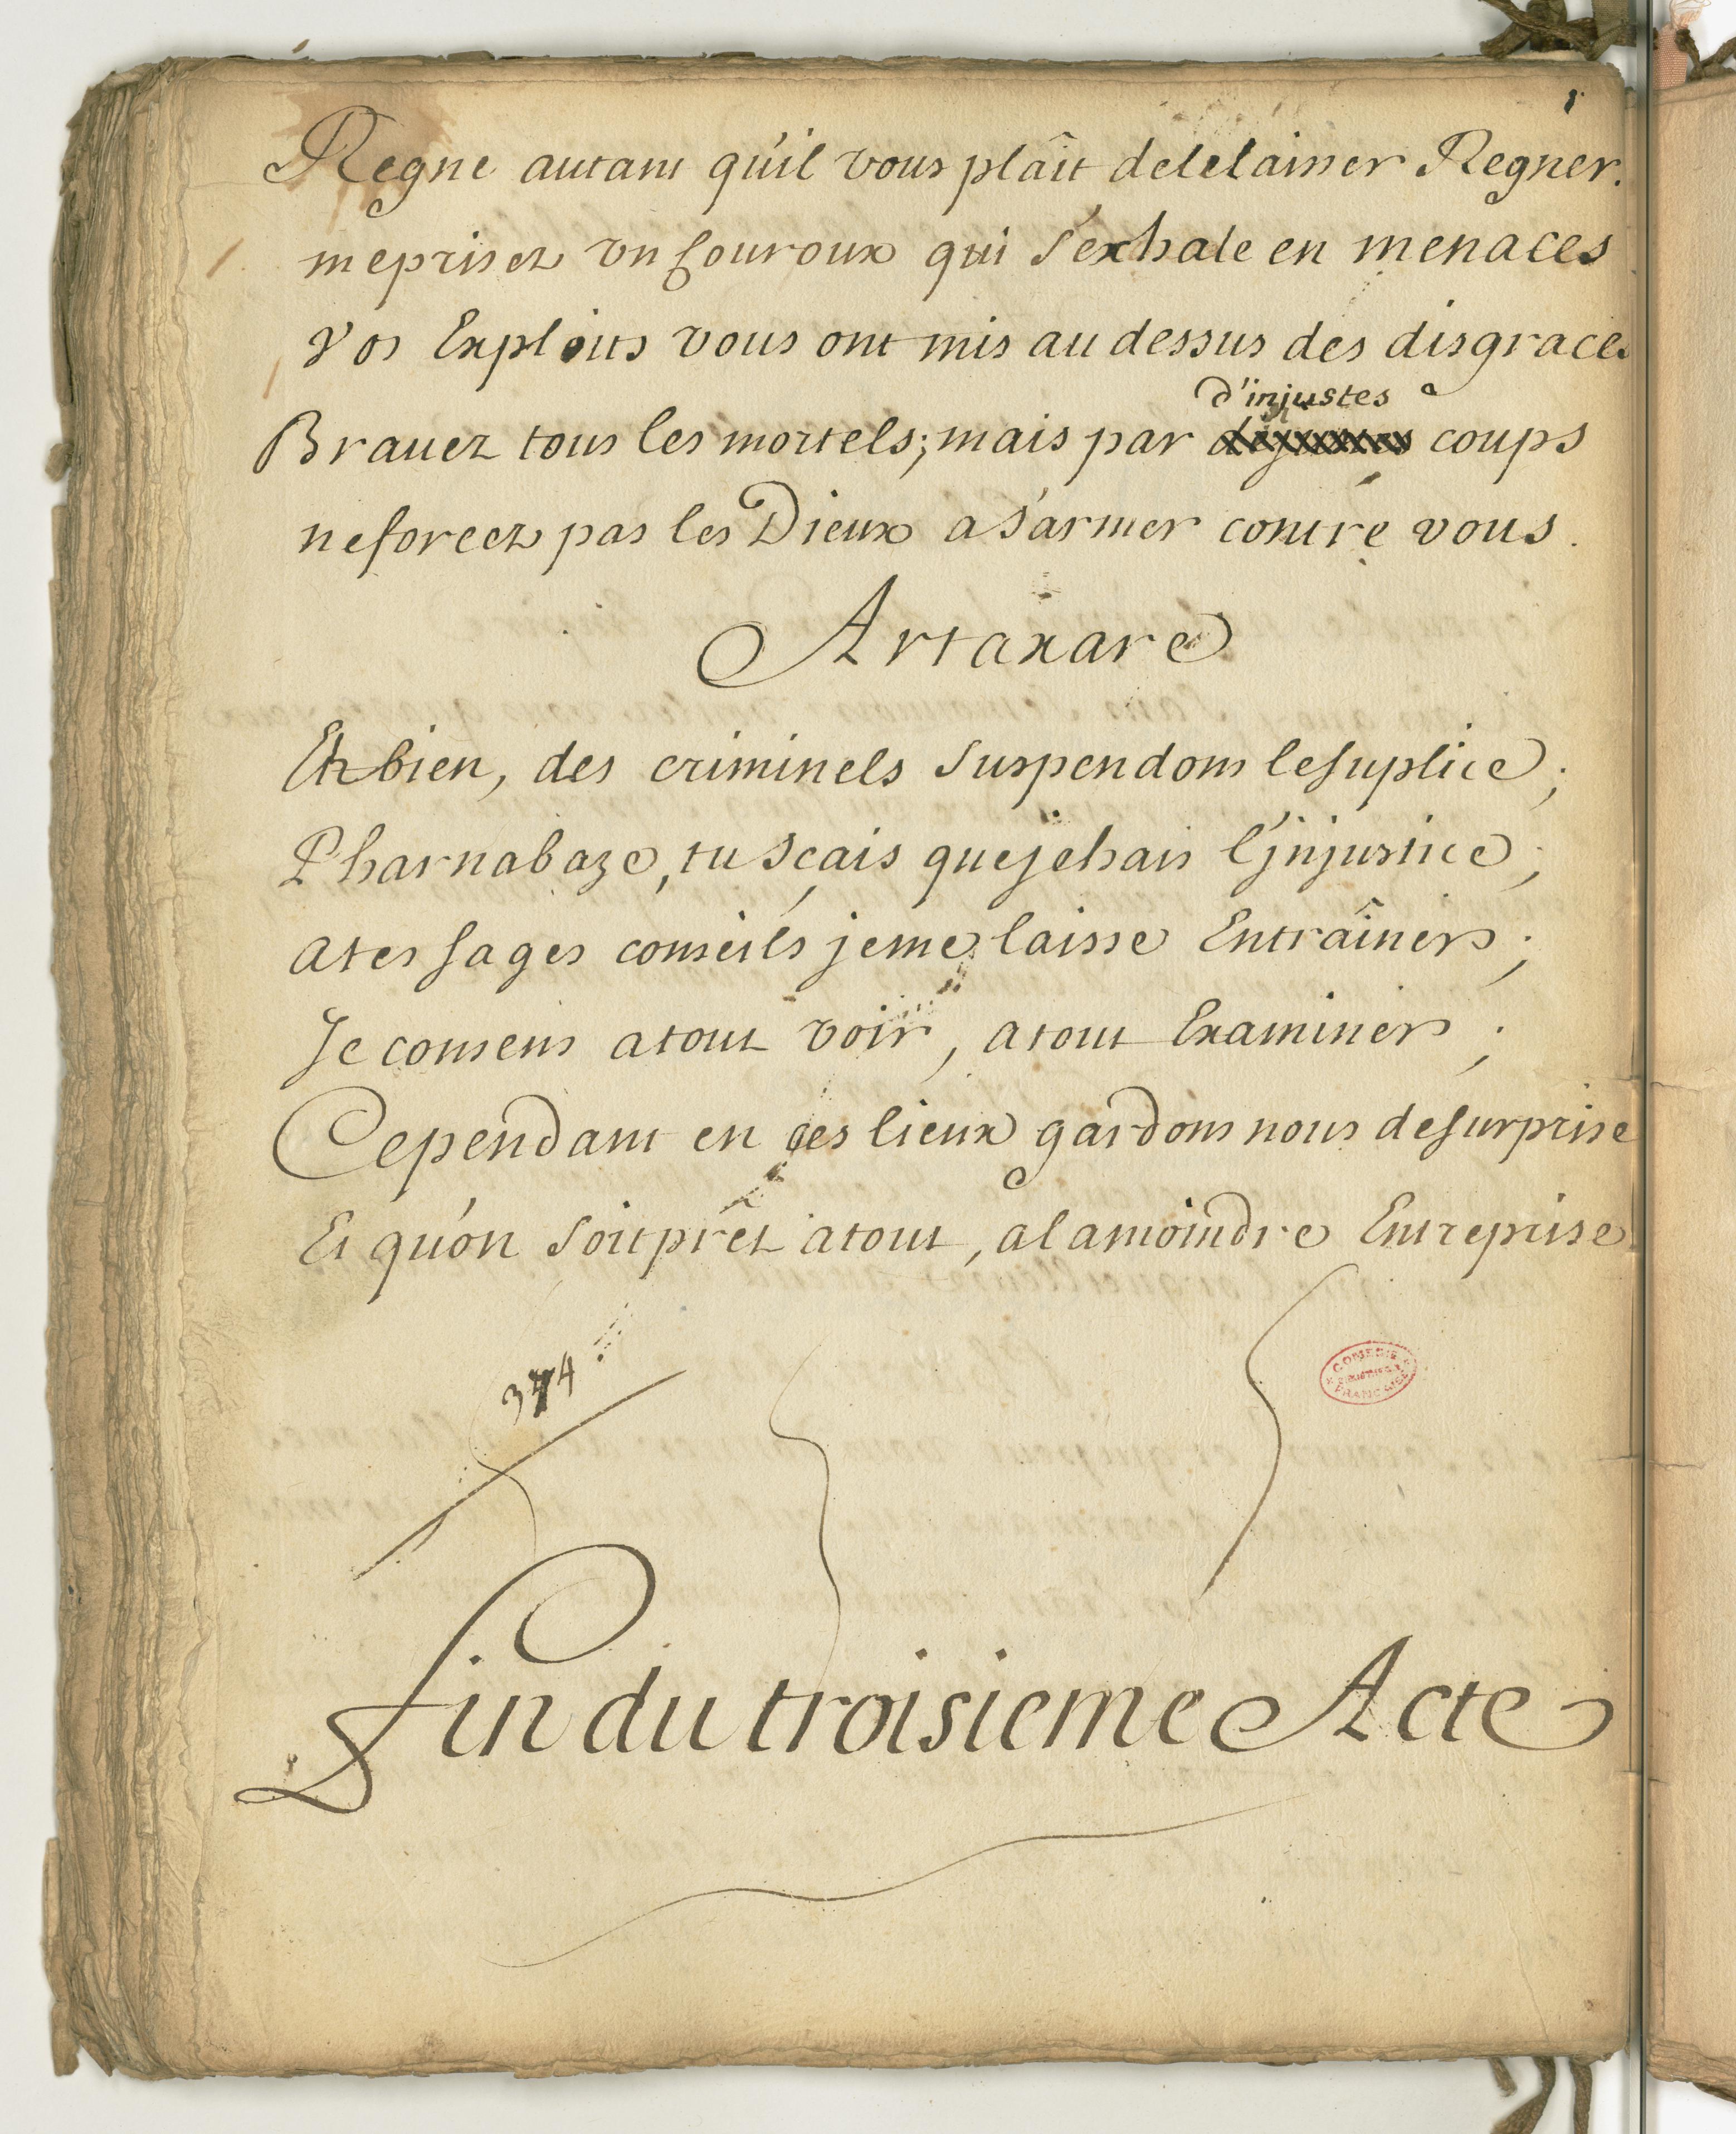 Regne autant qu'il vous plaît de le laisser Regner.
meprisez vn Couroux qui s'exhale en menaces
Vos Exploits vous ont mis au dessus des disgraces
d'injustes
Brauez tous les mortels; mais par coups
ne forcez pas les Dieux a s'armer contre vous.
Artaxare
Eh bien, des criminels suspendons le suplice;
Pharnabaze, tu sçais que je hais l'jnjustice;
a tes sages conseils je me laisse Entraîner;
Je consens a tout voir, a tout Examiner;
Cependant en ces lieux gardons nous de surprise
Et qu'on soit prêt a tout, a la moindre Entreprise
374
COMEDIE
FRANCAISE
Fin du troisieme Acte